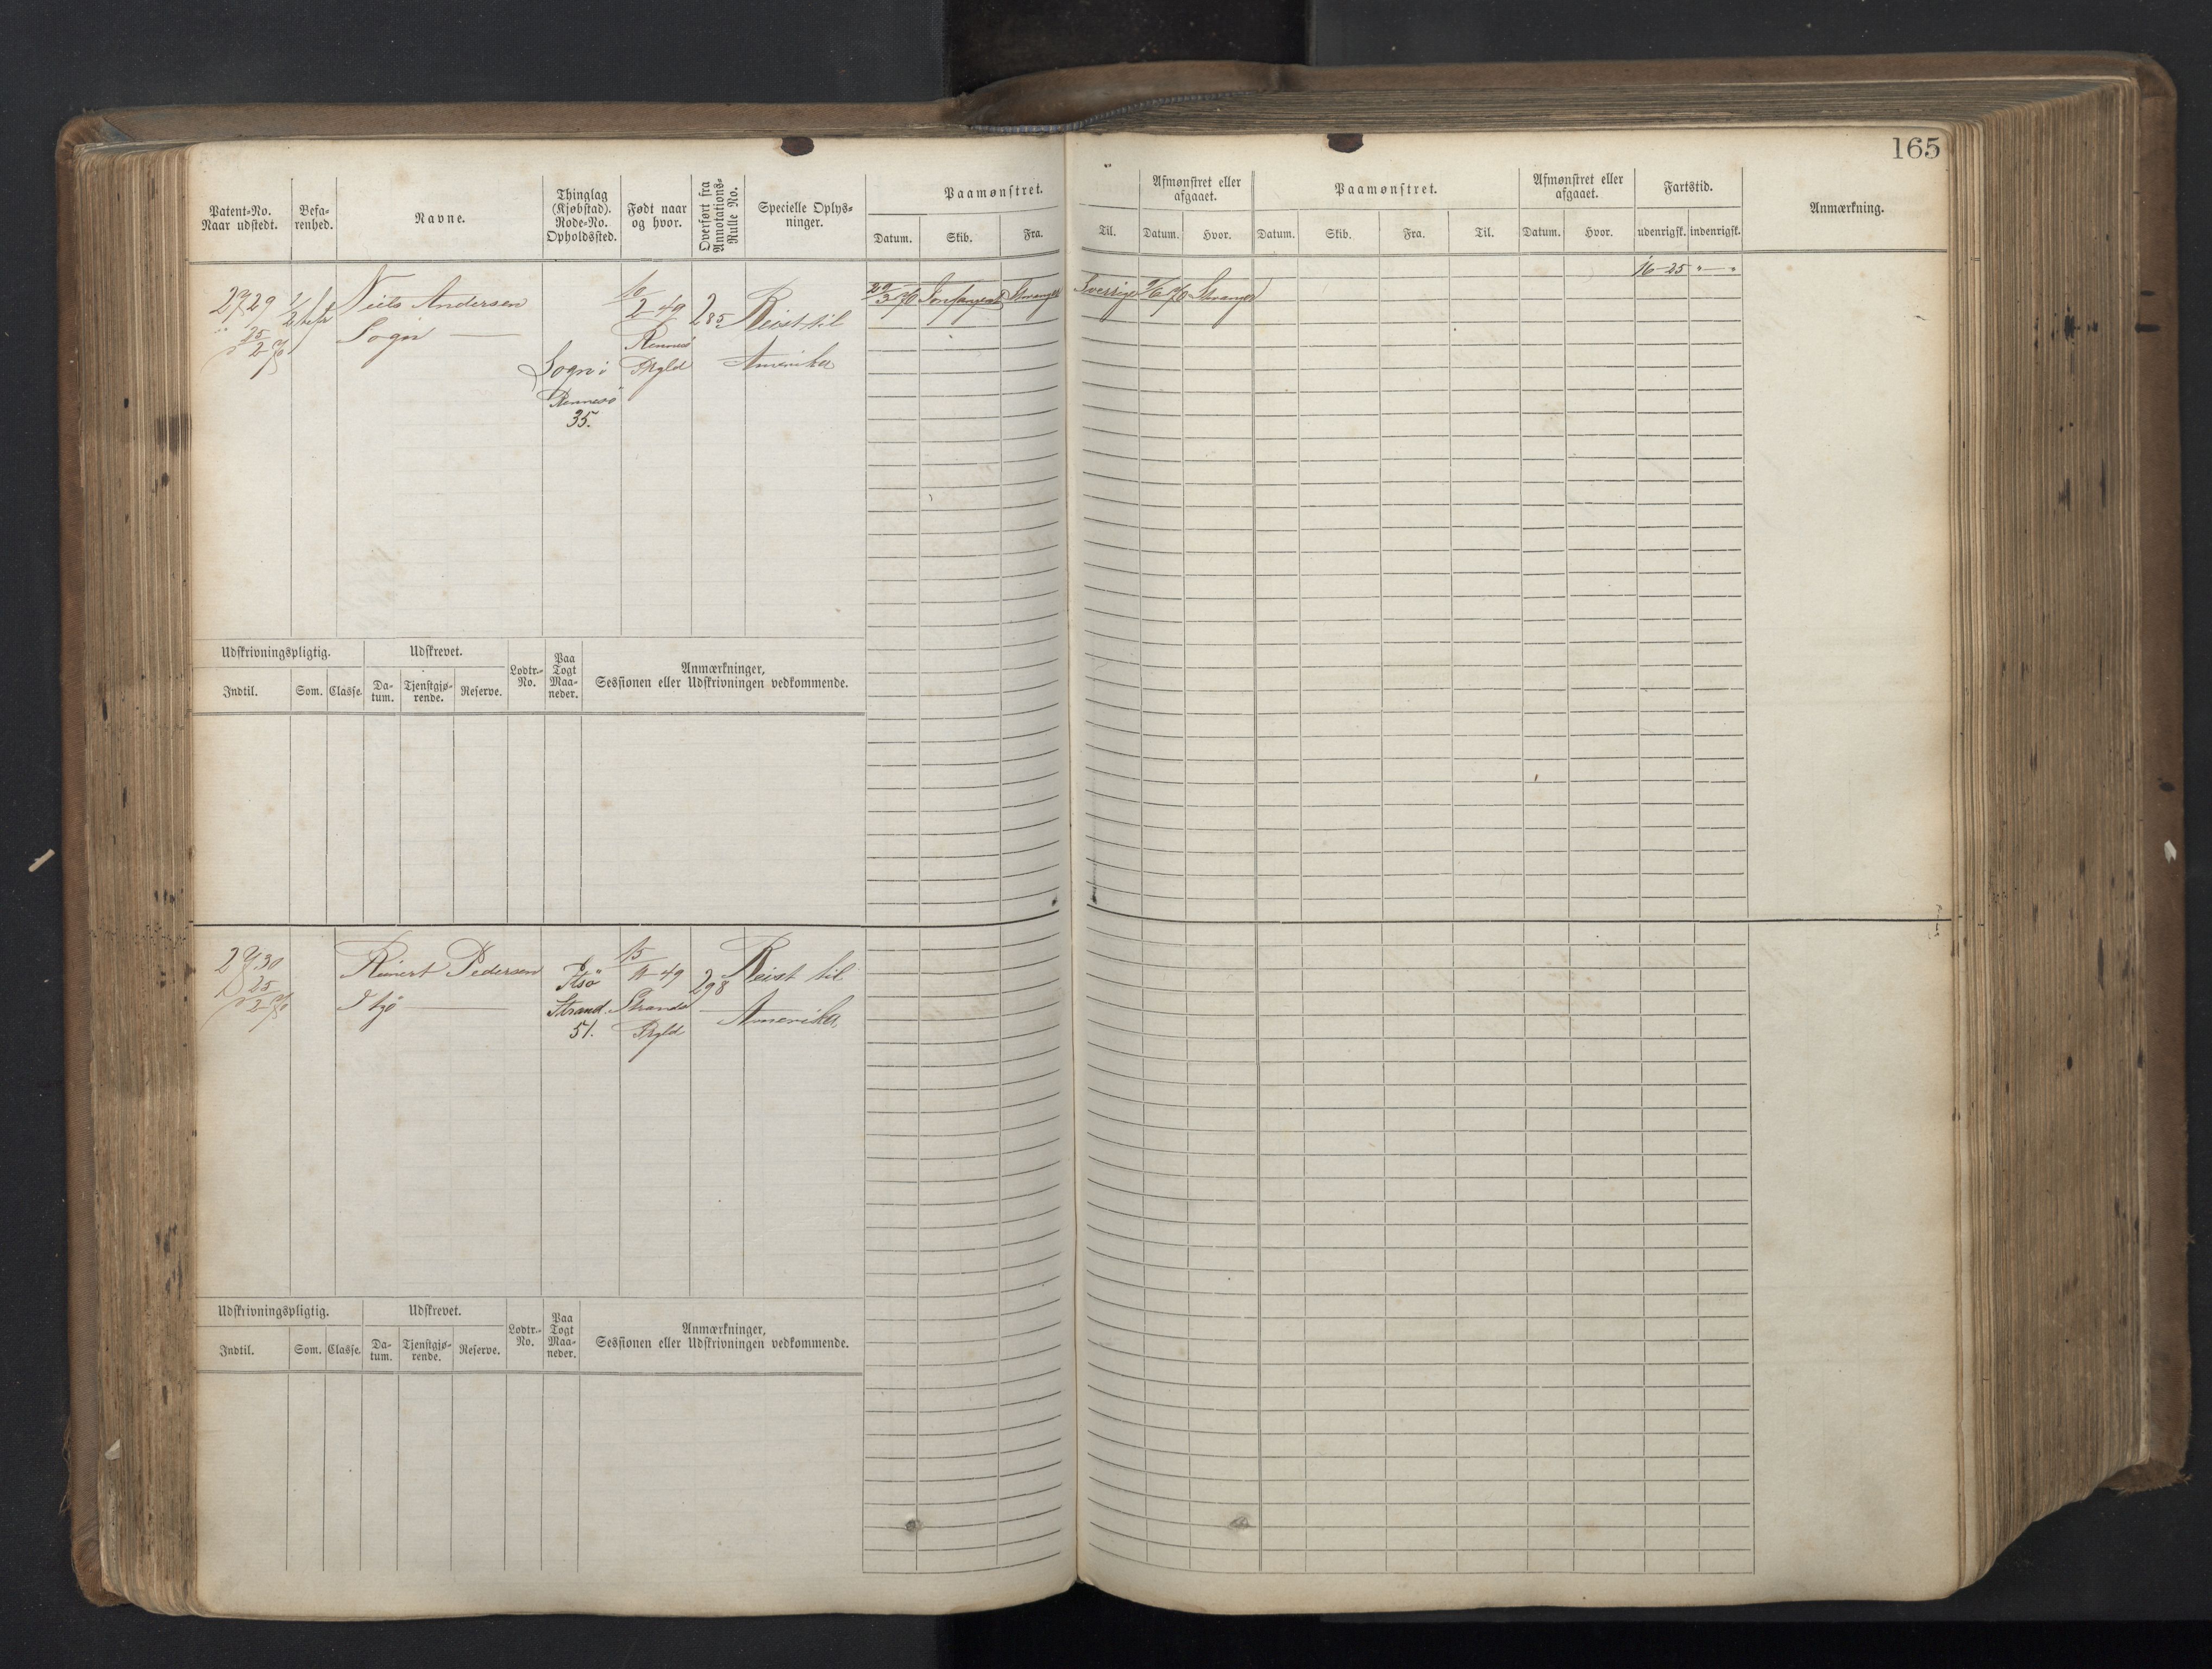 165
Patent-No. Naar udstedt.
Befa-renhed.
Navne.
Thinglag (Kjøbstad). Rode-No. Opholdssted.
Født naar og hvor.
Overført fra Annotations-Rulle No.
Specielle Oplys-ninger.
Paamønstret.
Datum. Skib. Fra. Til.
Afmønstret eller afgaaet.
Datum. Hvor.
Paamønstret.
Datum. Skib. Fra. Til.
Afmønstret eller afgaaet.
Datum. Hvor.
Fartstid.
udenrigsk. indenrigsk.
Anmærkning.
2729
25/2 70
1/2 bef
Niels Andersen
Sogn
Sogn i
Rennesö
35.
10/2 49
Rennesö
Prgld
285
Reist til
Amerika
29/3 70
Stavanger
Sverrige
9/6 70
Stavanger
16-25 " — "
Udskrivningspligtig.
Indtil. Som. Classe.
Udskrevet.
Da-tum. Tjenstgjø-rende. Reserve.
Lodtr.-No.
Paa Togt Maa-neder.
Anmærkninger,
Sessionen eller Udskrivningen vedkommende.
2730
25/2 70
Reinert Pedersen
Strand.
51.
49
Strands
Prgld
298
Reist til
Amerika
Udskrivningspligtig.
Indtil. Som. Classe.
Udskrevet.
Da-tum. Tjenstgjø-rende. Reserve.
Lodtr.-No.
Paa Togt Maa-neder.
Anmærkninger,
Sessionen eller Udskrivningen vedkommende.